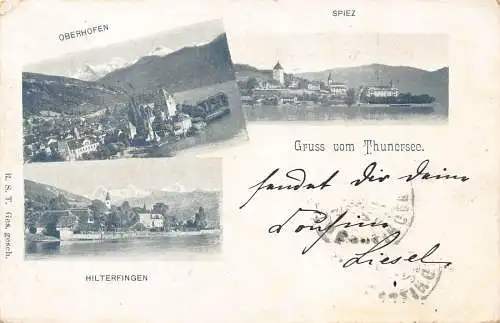 OBERHOFEN
SPIEZ
Gruss vom Thunersee.
sendet Dir Deine
Cousine
Liesel.
HILTERFINGEN
R. S. T. Ges. gesch.